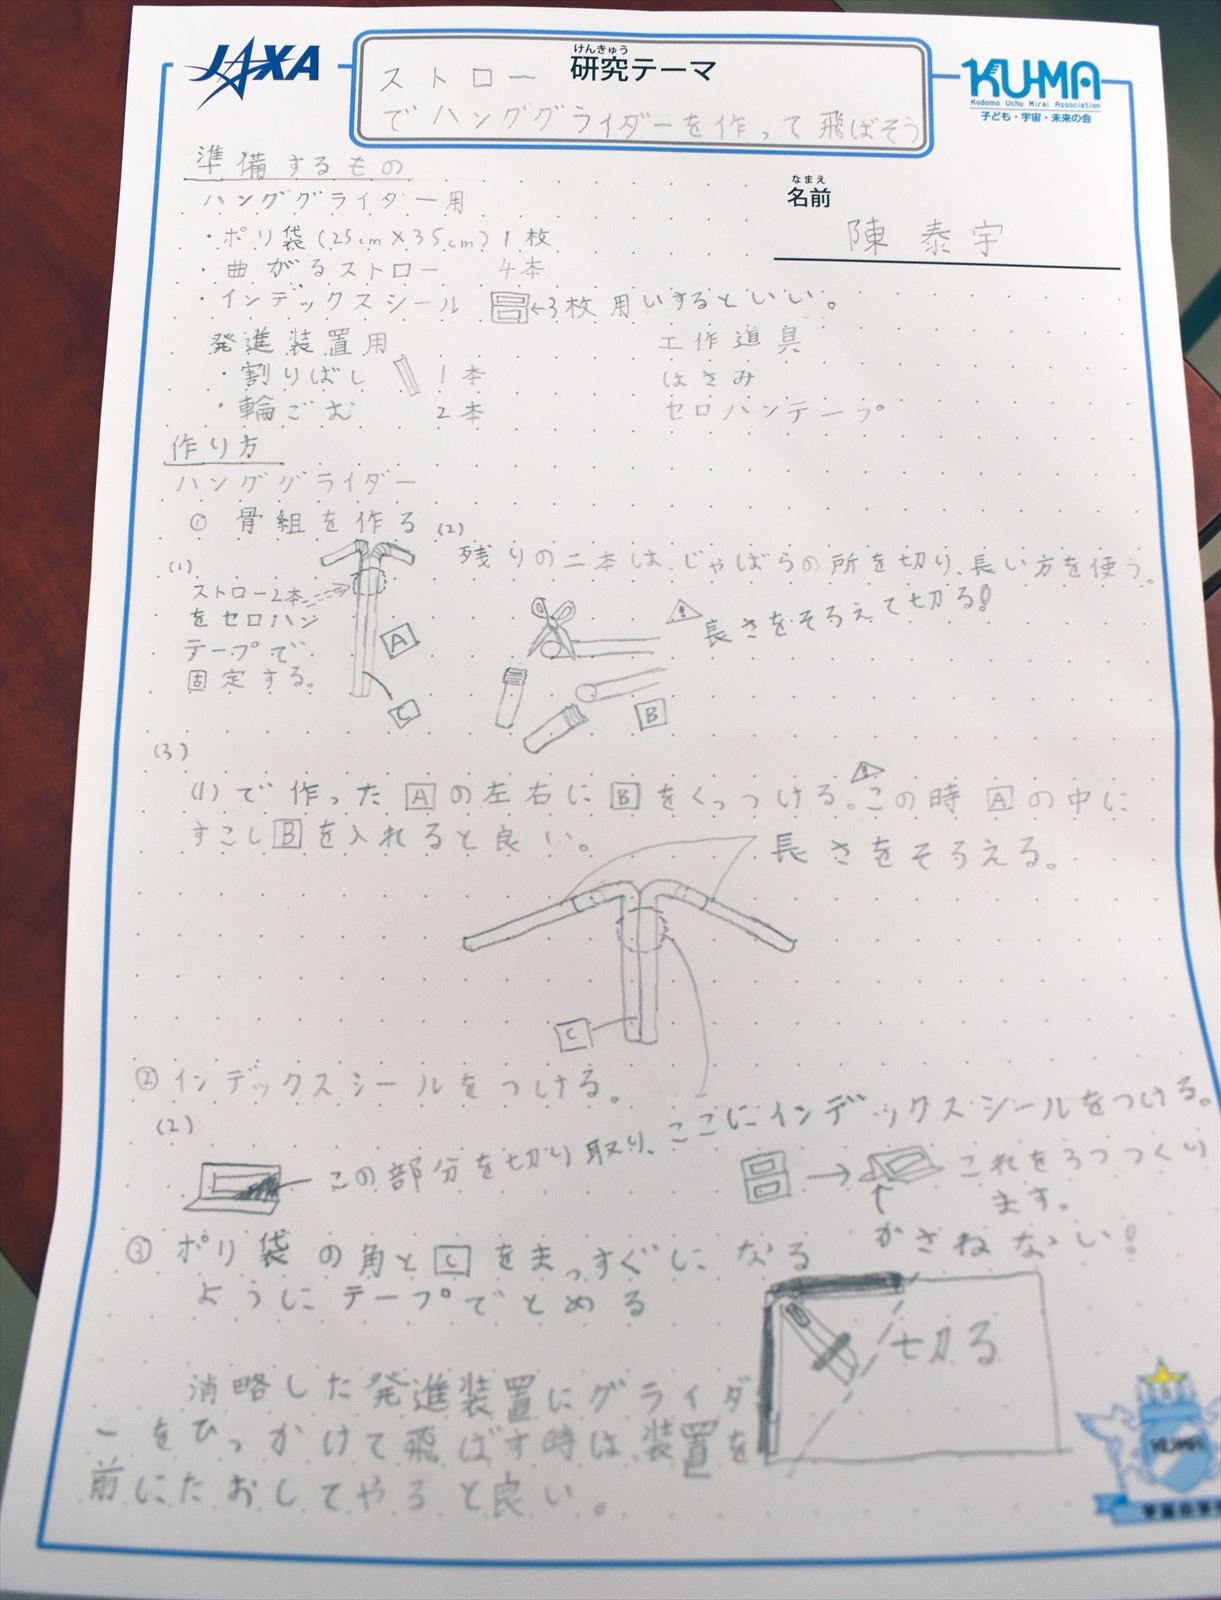 JAXA
けんきゅう
研究テーマ
KU-MA
Kodomo Uchu Mirai Association
子ども・宇宙・未来の会
ストロー
でハンググライダーを作って飛ばそう
なまえ
名前
陳泰宇
準備するもの
ハンググライダー用
・ポリ袋(25cm×35cm)1枚
・曲がるストロー 4本
・インデックスシール ←3枚用いするといい。
発進装置用
・割りばし 1本
・輪ごむ 2本
工作道具
はさみ
セロハンテープ
作り方
ハンググライダー
① 骨組を作る
(1)
ストロー2本
をセロハン
テープで
固定する。
A
C
(2)
残りの二本は、じゃばらの所を切り、長い方を使う。
長さをそろえて切る!
B
(3)
(1)で作ったAの左右にBをくっつける。この時Aの中に
すこしBを入れると良い。
長さをそろえる。
C
②インデックスシールをつける。
ここにインデックスシールをつける。
(2)
この部分を切り取り、
これを3つつくり
ます。
かさねない!
③ ポリ袋の角とCをまっすぐになる
ようにテープでとめる
切る
消略した発進装置にグライダ
ーをひっかけて飛ばす時は、装置を
前にたおしてやると良い。
KUMA